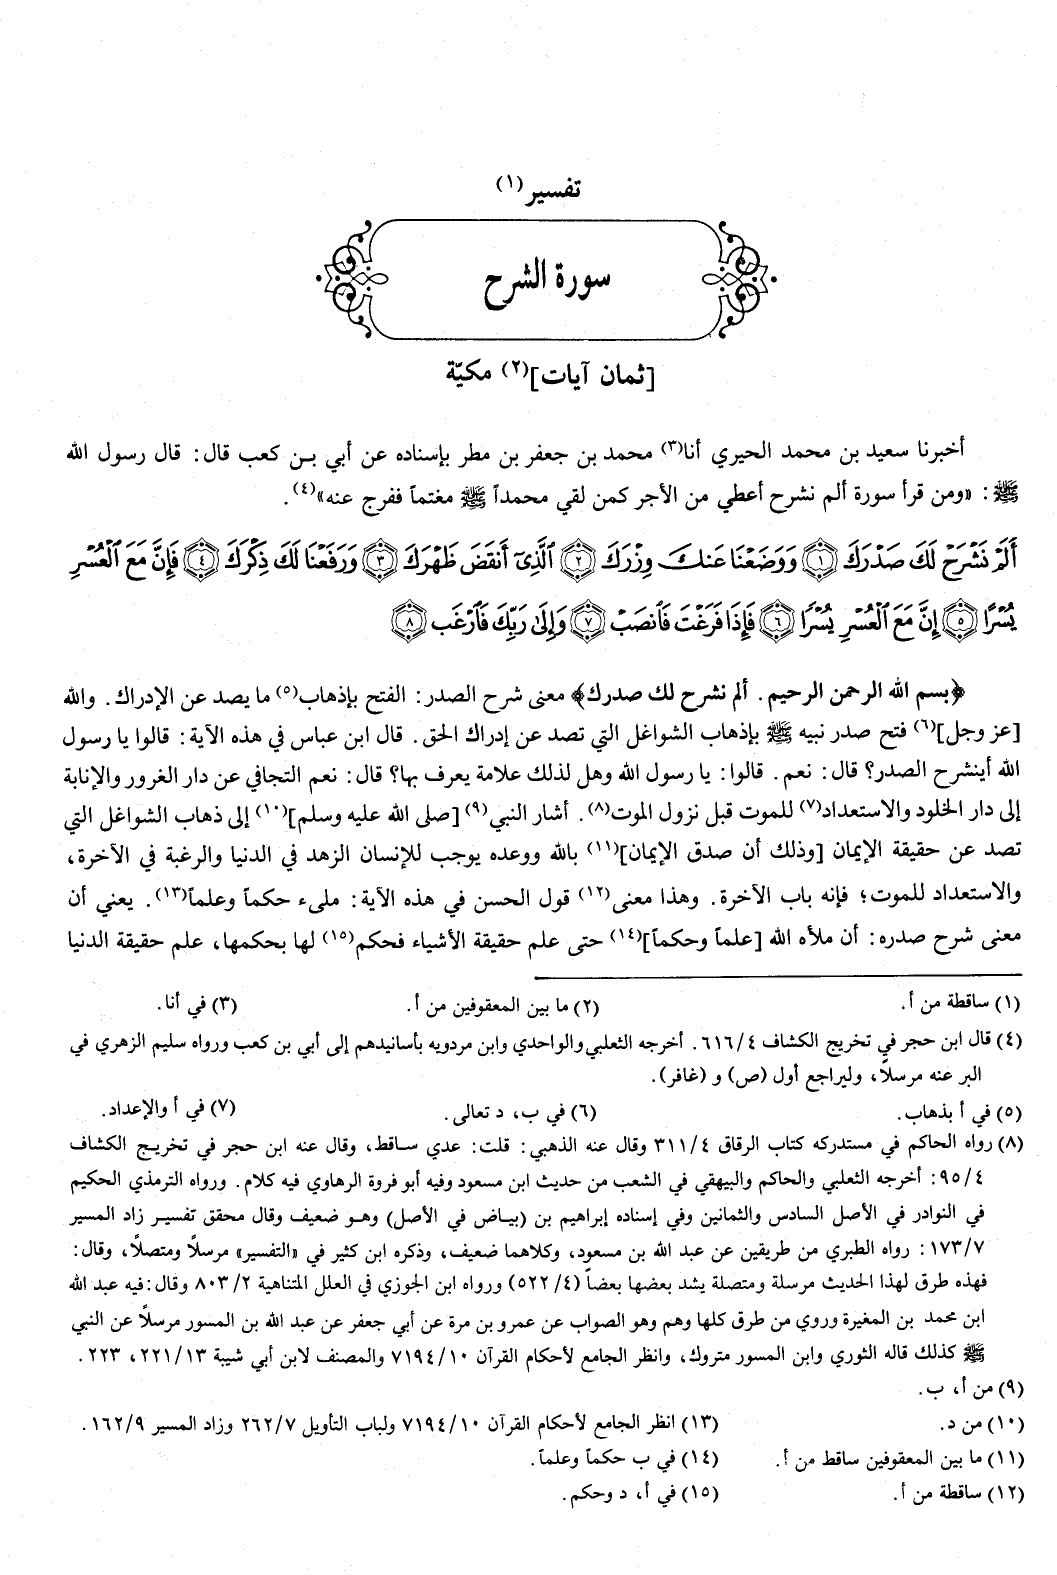 تفسير(١)
سورة الشرح
[ثمان آيات](٢) مكيّة
أخبرنا سعيد بن محمد الحيري أنا(٣) محمد بن جعفر بن مطر بإسناده عن أبي بن كعب قال: قال رسول الله
ﷺ: «ومن قرأ سورة ألم نشرح أعطي من الأجر كمن لقي محمداً ﷺ مغتماً ففرج عنه»(٤).
أَلَمْ نَشْرَحْ لَكَ صَدْرَكَ ﴿١﴾ وَوَضَعْنَا عَنكَ وِزْرَكَ ﴿٢﴾ الَّذِي أَنقَضَ ظَهْرَكَ ﴿٣﴾ وَرَفَعْنَا لَكَ ذِكْرَكَ ﴿٤﴾ فَإِنَّ مَعَ الْعُسْرِ
يُسْرًا ﴿٥﴾ إِنَّ مَعَ الْعُسْرِ يُسْرًا ﴿٦﴾ فَإِذَا فَرَغْتَ فَانصَبْ ﴿٧﴾ وَإِلَى رَبِّكَ فَارْغَب ﴿٨﴾
﴿بسم الله الرحمن الرحيم. ألم نشرح لك صدرك﴾ معنى شرح الصدر: الفتح بإذهاب(٥) ما يصد عن الإدراك. والله
[عز وجل](٦) فتح صدر نبيه ﷺ بإذهاب الشواغل التي تصد عن إدراك الحق. قال ابن عباس في هذه الآية: قالوا يا رسول
الله أينشرح الصدر؟ قال: نعم. قالوا: يا رسول الله وهل لذلك علامة يعرف بها؟ قال: نعم التجافي عن دار الغرور والإنابة
إلى دار الخلود والاستعداد(٧) للموت قبل نزول الموت(٨). أشار النبي(٩) [صلى الله عليه وسلم](١٠) إلى ذهاب الشواغل التي
تصد عن حقيقة الإيمان [وذلك أن صدق الإيمان](١١) بالله ووعده يوجب للإنسان الزهد في الدنيا والرغبة في الآخرة،
والاستعداد للموت؛ فإنه باب الآخرة. وهذا معنى(١٢) قول الحسن في هذه الآية: ملىء حكماً وعلماً(١٣). يعني أن
معنى شرح صدره: أن ملأه الله [علماً وحكماً](١٤) حتى علم حقيقة الأشياء فحكم(١٥) لها بحكمها، علم حقيقة الدنيا
(١) ساقطة من أ. (٢) ما بين المعقوفين من أ. (٣) في أنا.
(٤) قال ابن حجر في تخريج الكشاف ٦١٦/٤. أخرجه الثعلبي والواحدي وابن مردويه بأسانيدهم إلى أبي بن كعب ورواه سليم الزهري في
البر عنه مرسلاً، وليراجع أول (ص) و (غافر).
(٥) في أ بذهاب. (٦) في ب، د تعالى. (٧) في أ والإعداد.
(٨) رواه الحاكم في مستدركه كتاب الرقاق ٣١١/٤ وقال عنه الذهبي: قلت: عدي ساقط، وقال عنه ابن حجر في تخريج الكشاف
٩٥/٤: أخرجه الثعلبي والحاكم والبيهقي في الشعب من حديث ابن مسعود وفيه أبو فروة الرهاوي فيه كلام. ورواه الترمذي الحكيم
في النوادر في الأصل السادس والثمانين وفي إسناده إبراهيم بن (بياض في الأصل) وهو ضعيف وقال محقق تفسير زاد المسير
١٧٣/٧: رواه الطبري من طريقين عن عبد الله بن مسعود، وكلاهما ضعيف، وذكره ابن كثير في «التفسير» مرسلاً ومتصلاً، وقال:
فهذه طرق لهذا الحديث مرسلة ومتصلة يشد بعضها بعضاً (٥٢٢/٤) ورواه ابن الجوزي في العلل المتناهية ٨٠٣/٢ وقال: فيه عبد الله
ابن محمد بن المغيرة وروي من طرق كلها وهم وهو الصواب عن عمرو بن مرة عن أبي جعفر عن عبد الله بن المسور مرسلاً عن النبي
ﷺ كذلك قاله الثوري وابن المسور متروك، وانظر الجامع لأحكام القرآن ٧١٩٤/١٠ والمصنف لابن أبي شيبة ٢٢١/١٣، ٢٢٣.
(٩) من أ، ب.
(١٠) من د. (١٣) انظر الجامع لأحكام القرآن ٧١٩٤/١٠ ولباب التأويل ٢٦٢/٧ وزاد المسير ١٦٢/٩.
(١١) ما بين المعقوفين ساقط من أ. (١٤) في ب حكماً وعلماً.
(١٢) ساقطة من أ. (١٥) في أ، د وحكم.